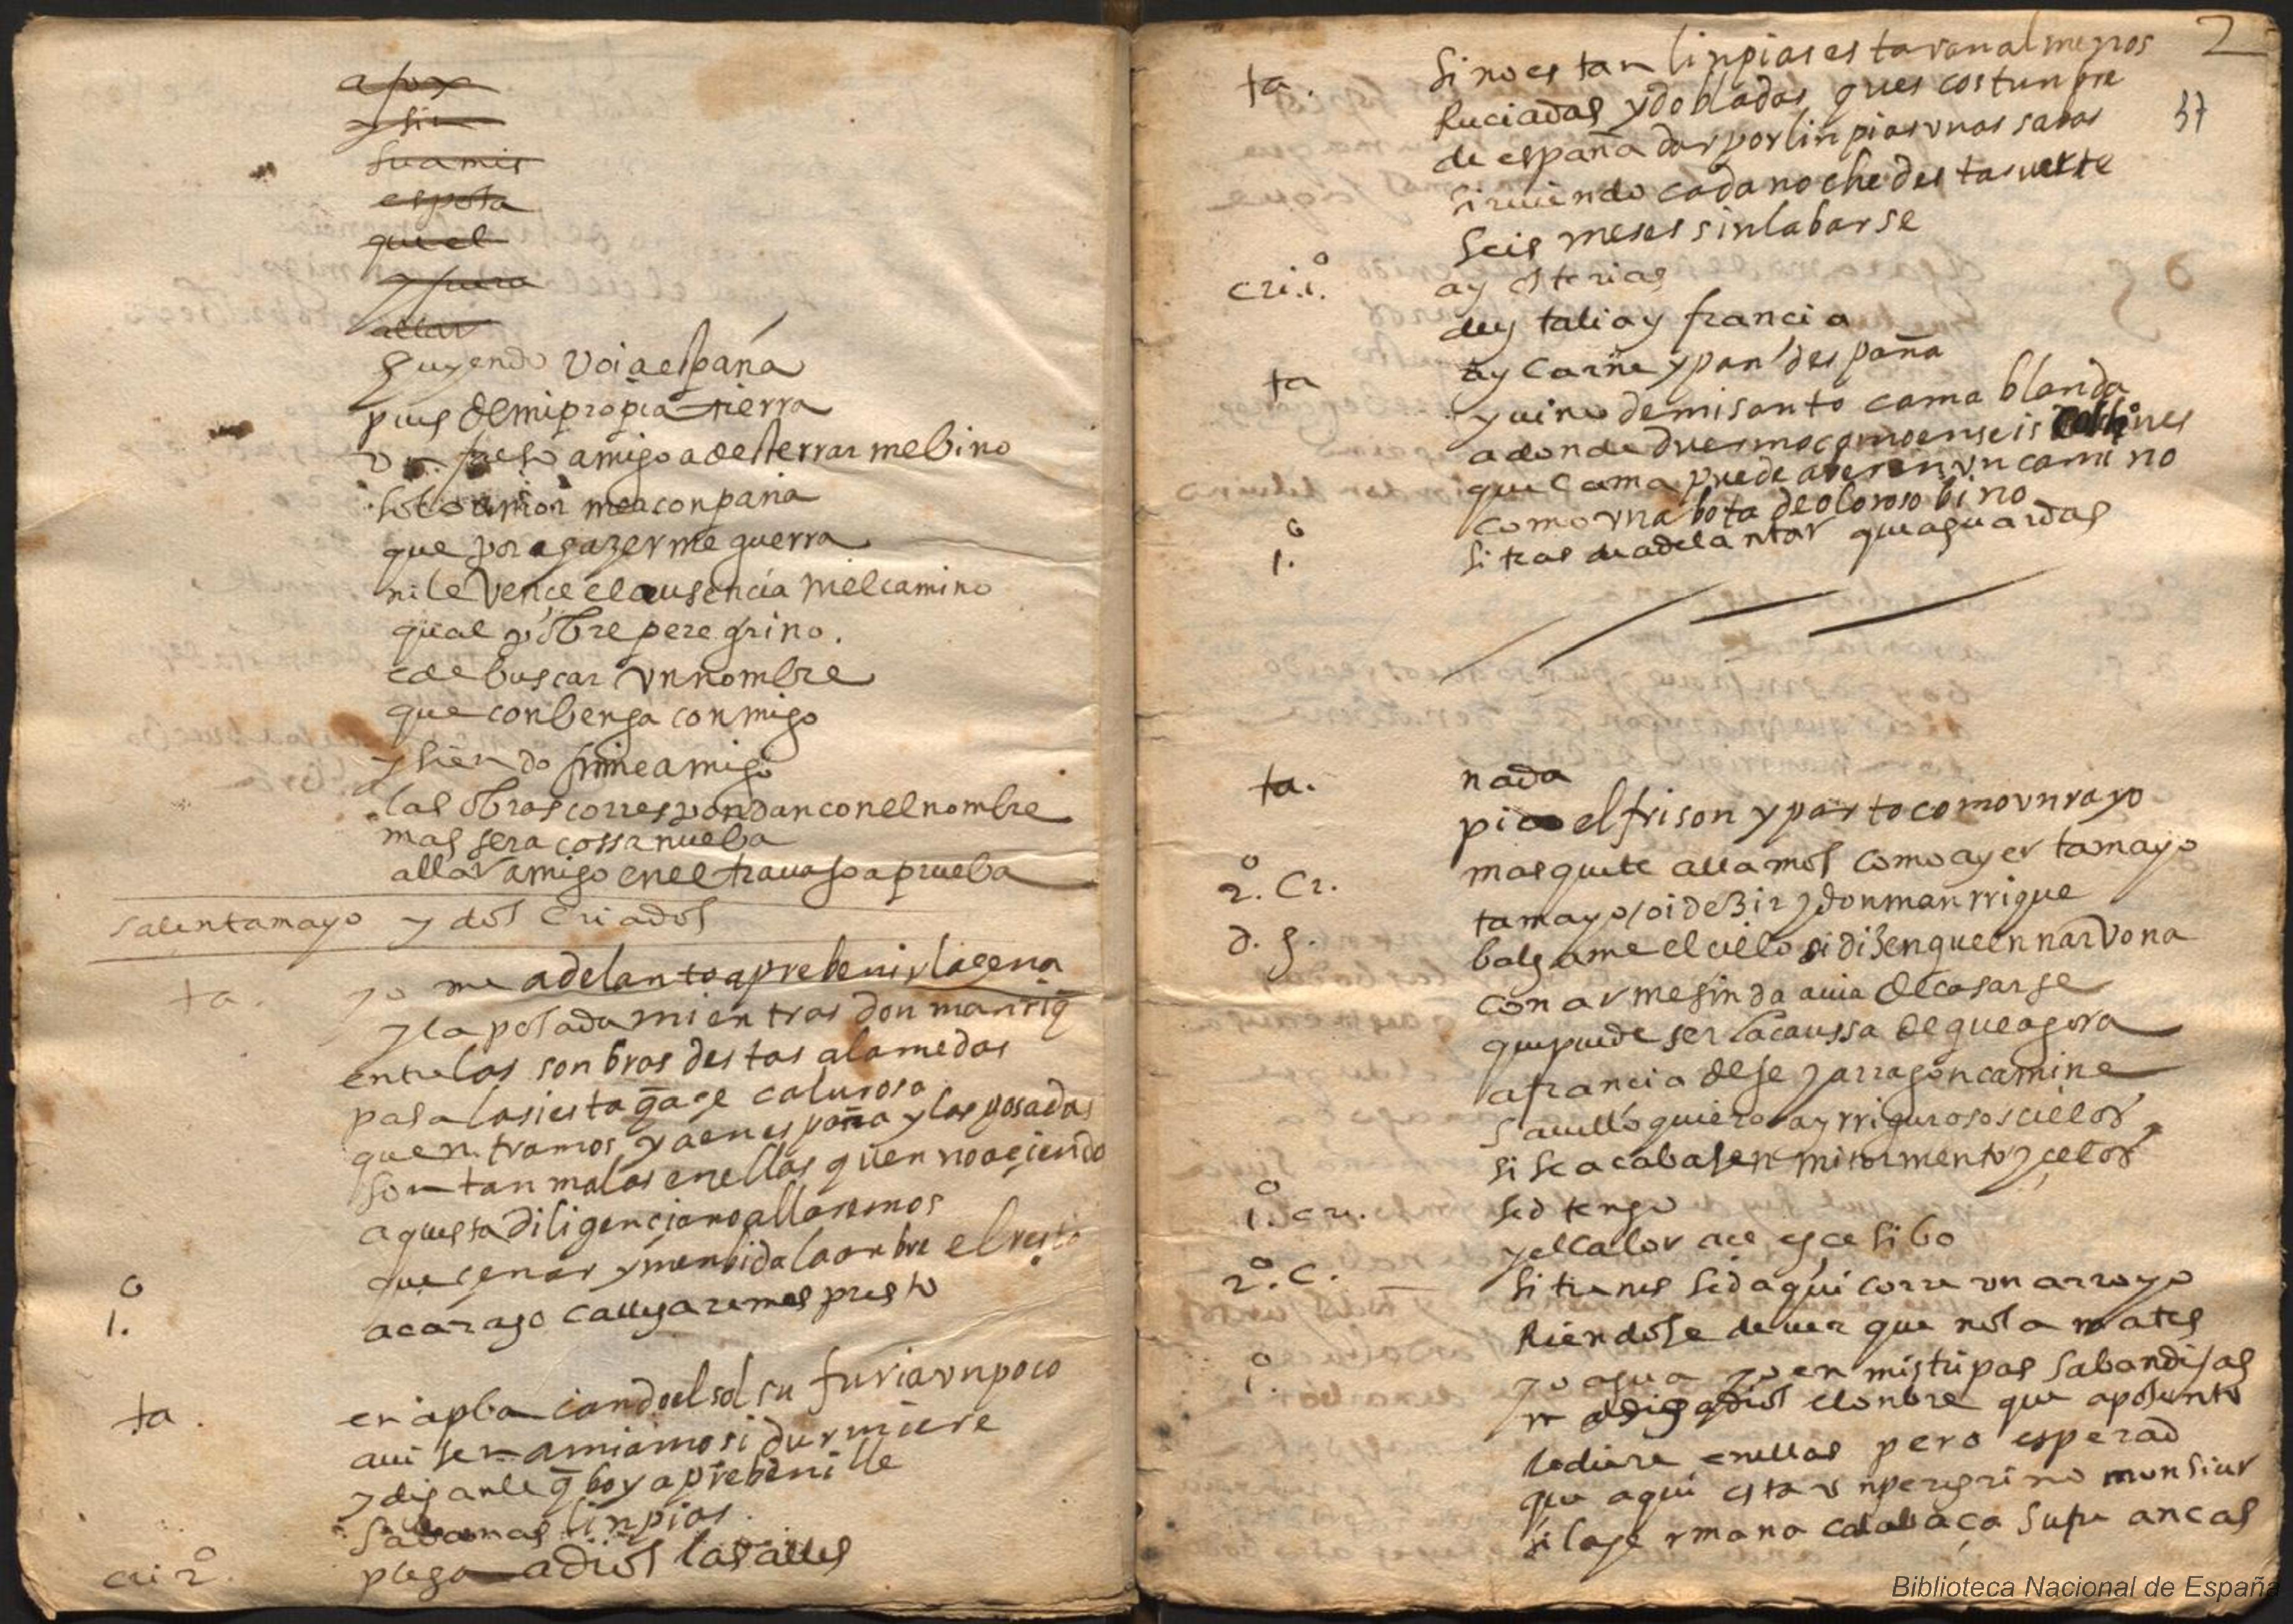 y sin
su amis
esposa
que el
y fuera
allar
huyendo voi a españa
pues de mi propia tierra
un falso amigo a desterrar me bino
solo amor me aconpaña
que por açazerme guerra
ni le vence el ausencia ni el camino
qual pobre peregrino
e de buscar un nombre
que conbenga conmigo
y siendo firme amigo
las obras correspondan con el nombre
mas sera cossa nueba
allar amigo en el trauajo a prueba
salen tamayo y dos criados
ta. yo me adelanto a prebenir la çena
y la posada mientras don manriq̄
entre las sonbras destas alamedas
pasa la siesta q̄ açe calurosa
que entramos ya en españa y las posadas
son tan malas en ellas que en no açiendo
aquesta diligençia no allaremos
que çenar y mi bida la onbre el resto
1.º acarago ca llegaremos presto
ta. en aplacando el sol su furia un poco
auisen a mi amo si durmiere
y diganle q̄ boy a prebenille
sabanas linpias
cri 2.º plega a dios las alles
2
37
ta. si no estan linpias estaran al menos
Ruciadas y dobladas ques costunbre
de españa dar por linpias unas sabas
siruiendo cada noche desta suerte
seis meses sin labarse
cri. 1.º ay osterias
de ytalia y francia
ta ay carne y pan despaña
y uino de mi santo cama blanda
a donde duermo como en seis colchines
que cama puede aver en un camino
como una bota de oloroso bino
1.º si te as de adelantar que aguardas
ta. nada
pico el frison y parto como un rayo
2.º Cr. mas que te allamos como ayer tamayo
d. g. tamayo oi dezir y don manrrique
balgame el cielo si dizen que en narvona
con armesinda auia de casarse
que puede ser la caussa de que agora
a francia deje y a arragon camine
sauello quiero ay rrigurosos cielos
si se acabasen mi tormento y çelos
1.º cri. sed tengo
y el calor açe esçesibo
2.º C. si tienes sed aqui corre un arroyo
Riendose de uer que no la mates
1.º yo agua yo en mis tripas sabandijas
le diere en ellas pero esperad
que aqui esta un peregrino monsiur
si la germana calabaça supe ancas
Biblioteca Nacional de España